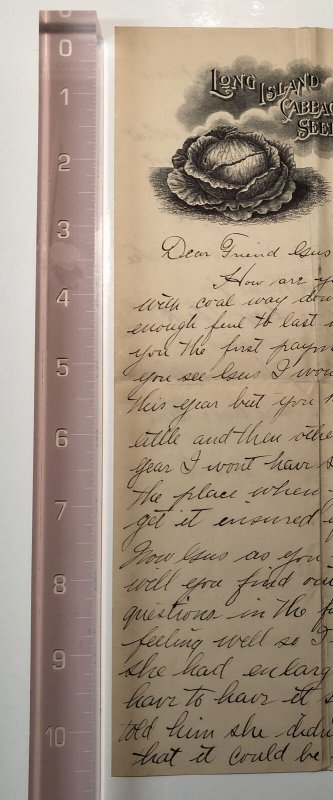 0
1
2
3
4
5
6
7
8
9
10
LONG ISLAND
CABBAG
SEE
Dear Friend Gus
How are y
with coal way dow
enough fuel to last
you the first paym
you see Gus I wou
this year but you
little and then othe
year I wont have
the place when
get it ensured
Now Gus as you
will you find ou
questions in the f
feeling well so I
she had enlarg
have to have it s
told him she didn
that it could be